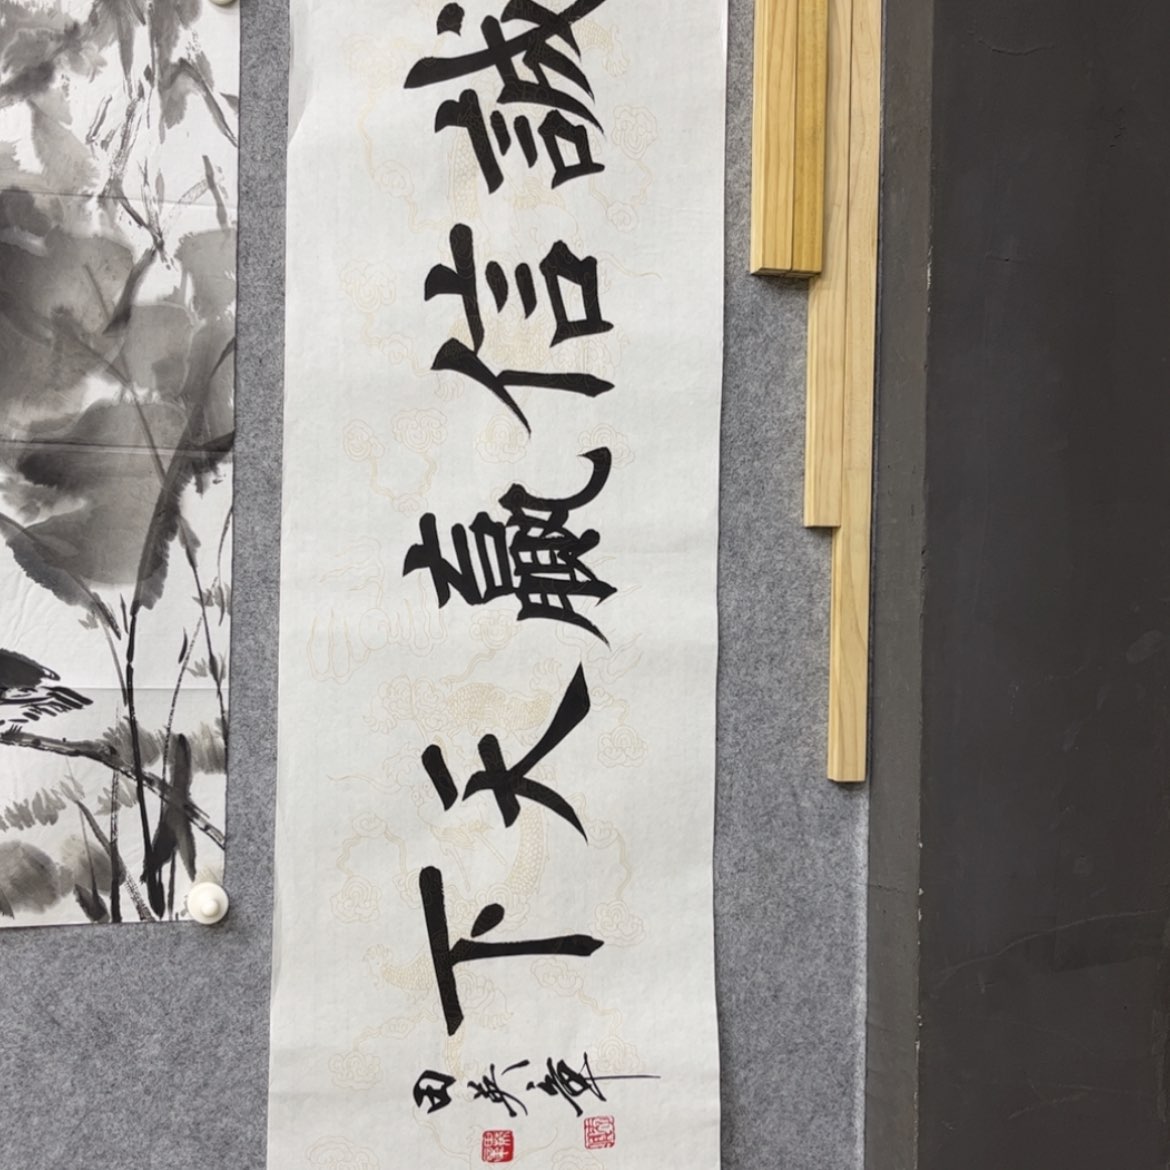 誠信贏天下
田英章